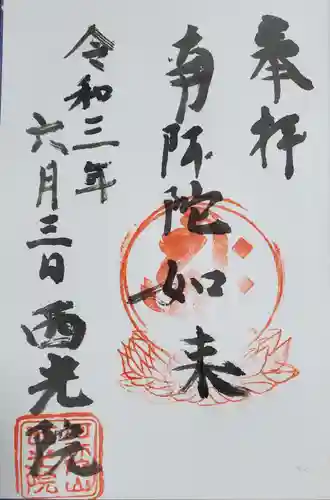 奉拝
南阿陀如来
令和三年
六月三日
西光院